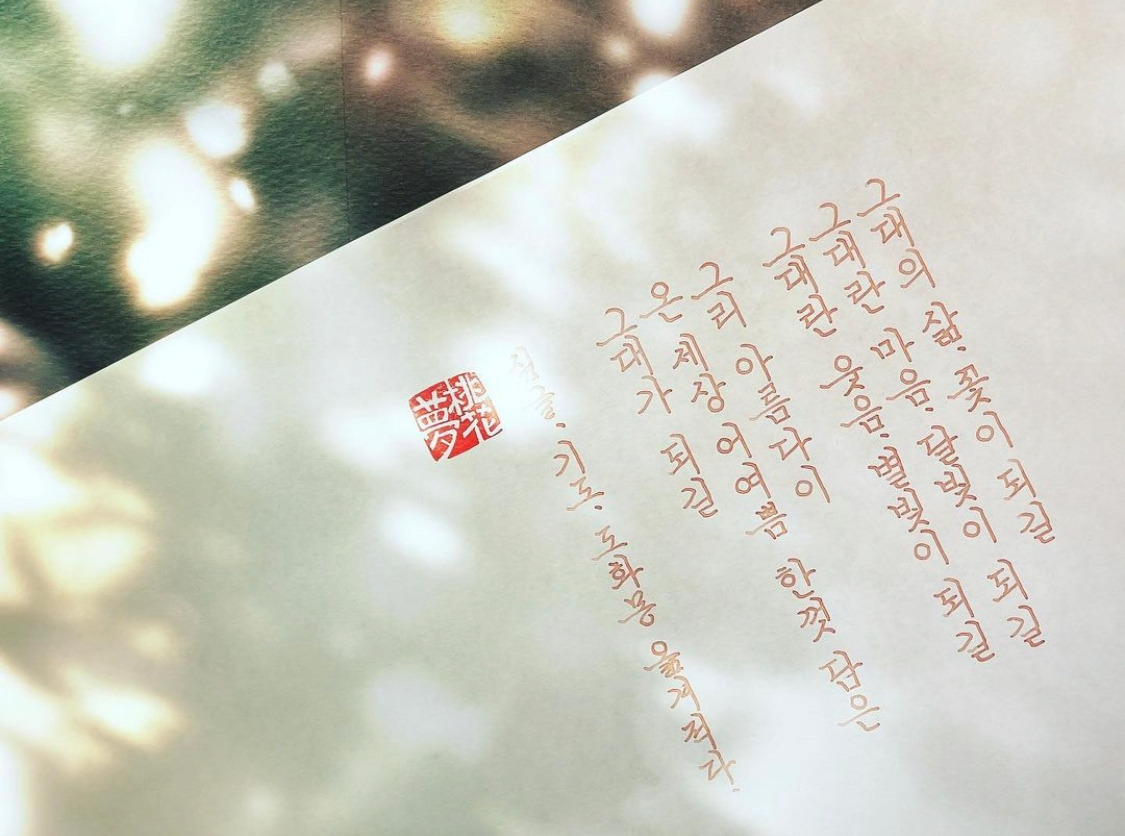 그대의 삶. 꽃이 되길
그대란 마음. 달빛이 되길
그대란 웃음. 별빛이 되길
그리 아름다이
온 세상 어여쁨 한껏 담은
그대가 되길
기도. 도화몽 옮겨적다.
桃花夢